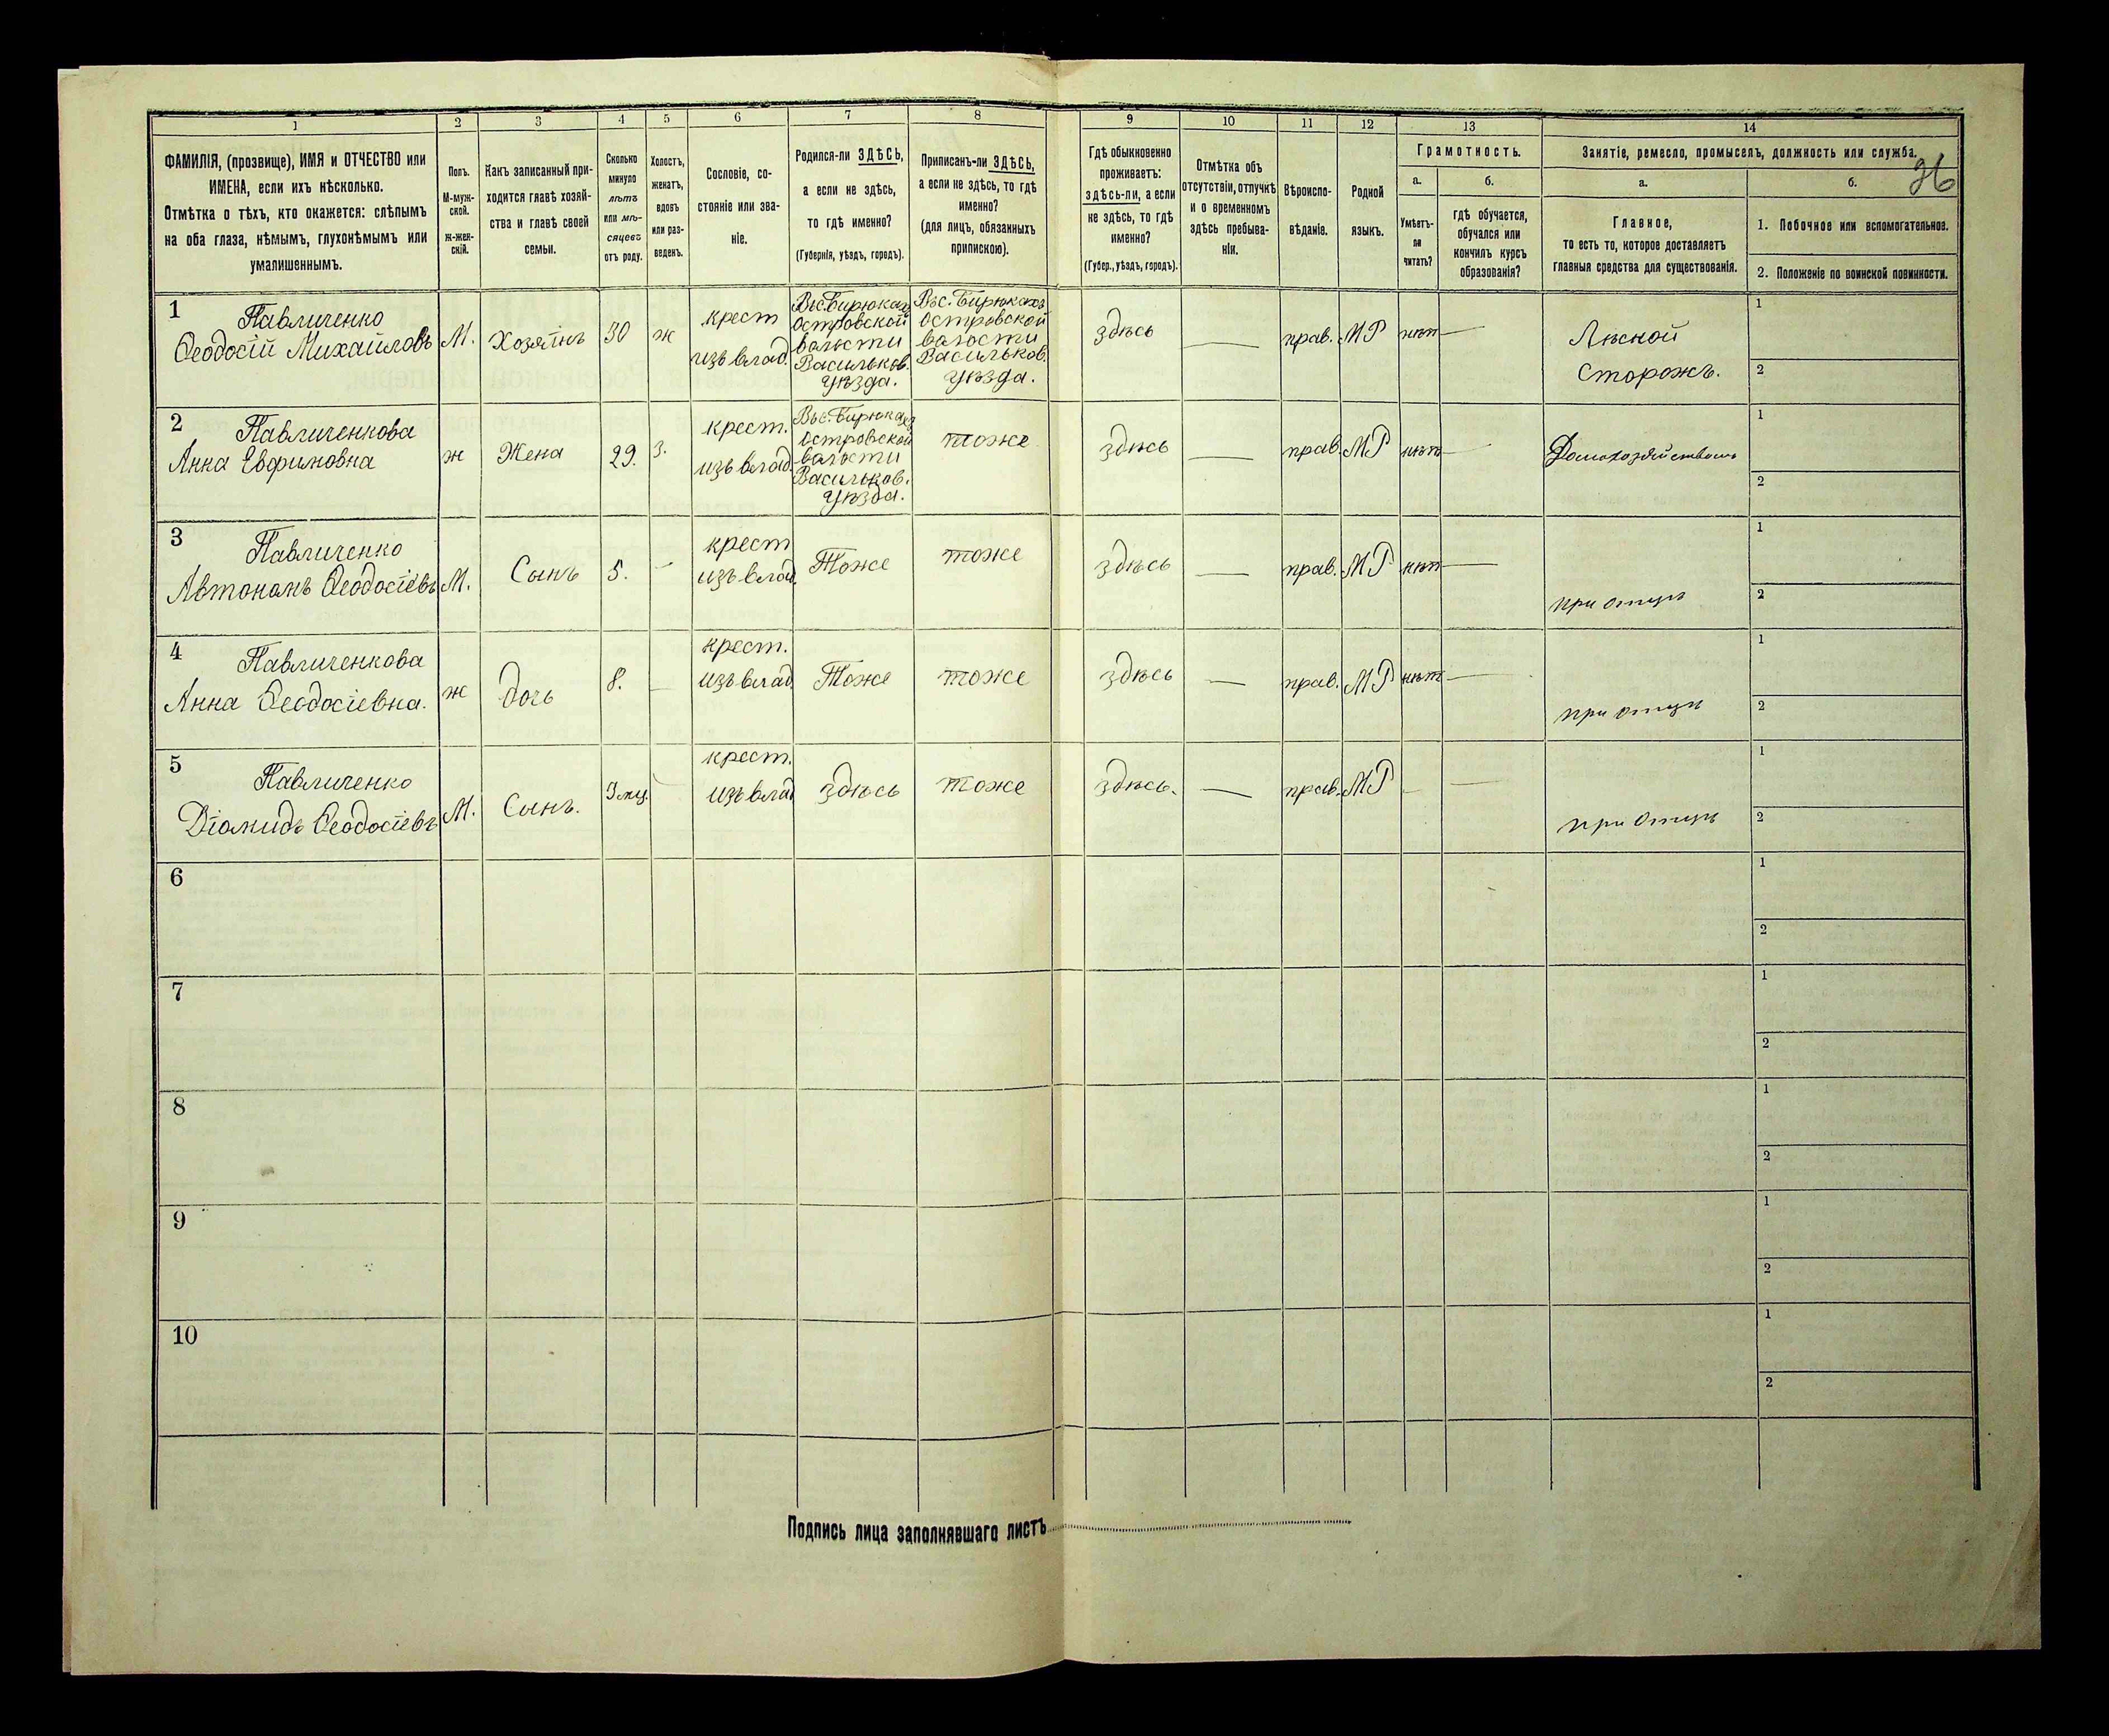 1 2 3 4 5 6 7 8 9 10 11 12 13 14
36
ФАМИЛІЯ, (прозвище), ИМЯ и ОТЧЕСТВО или
ИМЕНА, если ихъ нѣсколько.
Отмѣтка о тѣхъ, кто окажется: слѣпымъ
на оба глаза, нѣмымъ, глухонѣмымъ или
умалишеннымъ.
Полъ.
М-муж-
ской.
ж-жен-
скій.
Какъ записанный при-
ходится главѣ хозяй-
ства и главѣ своей
семьи.
Сколько
минуло
лѣтъ
или мѣ-
сяцевъ
отъ роду.
Холостъ,
женатъ,
вдовъ
или раз-
веденъ.
Сословіе, со-
стояніе или зва-
ніе.
Родился-ли ЗДѢСЬ,
а если не здѣсь,
то гдѣ именно?
(Губернія, уѣздъ, городъ).
Приписанъ-ли ЗДѢСЬ,
а если не здѣсь, то гдѣ
именно?
(для лицъ, обязанныхъ
припискою).
Гдѣ обыкновенно
проживаетъ:
здѣсь-ли, а если
не здѣсь, то гдѣ
именно?
(Губер., уѣздъ, городъ).
Отмѣтка объ
отсутствіи, отлучкѣ
и о временномъ
здѣсь пребыва-
ніи.
Вѣроиспо-
вѣданіе.
Родной
языкъ.
Грамотность.
а.
Умѣетъ-
ли
читать?
б.
гдѣ обучается,
обучался или
кончилъ курсъ
образованія?
Занятіе, ремесло, промыселъ, должность или служба.
а.
Главное,
то есть то, которое доставляетъ
главныя средства для существованія.
б.
1. Побочное или вспомогательное.
2. Положеніе по воинской повинности.
1
Павличенко
Ѳеодосій Михайловъ
М.
Хозяинъ
30
ж
крест
изъ влад.
Въ с. Бирюкахъ
Островской
волости
Васильков.
уѣзда.
Въ с. Бирюкахъ
Островской
волости
Васильков.
уѣзда.
здѣсь
—
прав.
МР
нѣт
—
Лѣсной
Сторожъ.
1
2
2
Павличенкова
Анна Евфимовна
ж
Жена
29.
З.
крест.
изъ влад.
Въ с. Бирюкахъ
Островской
волости
Васильков.
уѣзда.
тоже
здѣсь
—
прав.
МР
нѣт
—
Домохозяйством
1
2
3
Павличенко
Автономъ Ѳеодосіевъ
М.
Сынъ
5.
-
крест
изъ влад.
Тоже
тоже
здѣсь
—
прав.
МР
нѣт
—
при отцѣ
1
2
4
Павличенкова
Анна Ѳеодосіевна.
ж
дочь
8.
—
крест.
изъ влад.
Тоже
тоже
здѣсь
—
прав.
МР
нѣт
—
при отцѣ
1
2
5
Павличенко
Діомидъ Ѳеодосіевъ
М.
Сынъ.
3 мц.
крест.
изъ влад
здѣсь
тоже
здѣсь.
—
прав.
МР
-
—
при отцѣ
1
2
6
1
2
7
1
2
8
1
2
9
1
2
10
1
2
Подпись лица заполнявшаго листъ